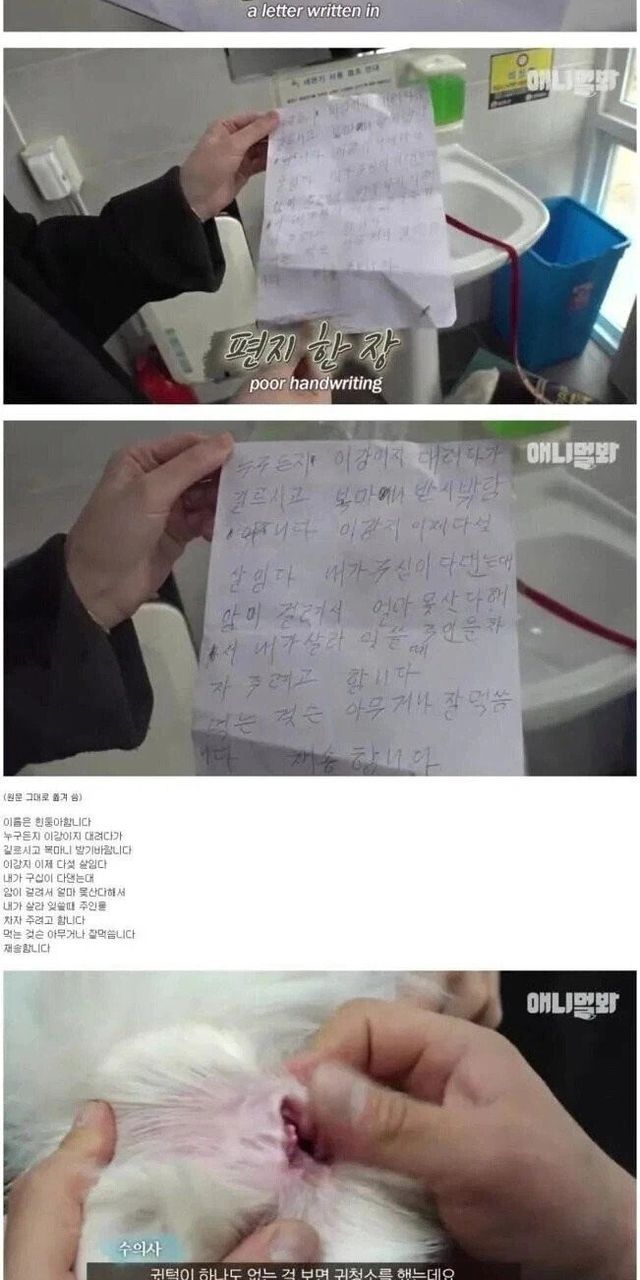 a letter written in
애니멀봐
세면기 사용 협조 안내
편지 한 장
poor handwriting
애니멀봐
누구든지 이강이지 대려다가
길르시고 복마니 받시바람
니다 이강지 이제다섯
살임다 내가구십이다댄는대
암이 걸려서 얼마못산다해
서 내가살라 잇쓸때 주인을차
자 주려고 합니다
먹는 것슨 아무거나 잘먹씀
니다 재송합니다
(원문 그대로 옮겨 씀)
이름은 힌둥아함니다
누구든지 이강이지 대려다가
길르시고 복마니 받기바람니다
이강지 이제 다섯 살임다
내가 구십이 다댄는대
암이 걸려서 얼마 못산다해서
내가 살라 잇쓸때 주인를
차자 주려고 함니다
먹는 것슨 아무거나 잘먹씀니다
재송함니다
애니멀봐
수의사
귓털이 하나도 없는 걸 보면 귀청소를 했는데요